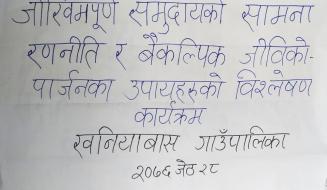 जोखिमपूर्ण समुदायको सामना
रणनीति र बैकल्पिक जीविको-
पार्जनका उपायहरुको विश्लेषण
कार्यक्रम
खनियाबास गाउँपालिका
२०७६ जेठ २८